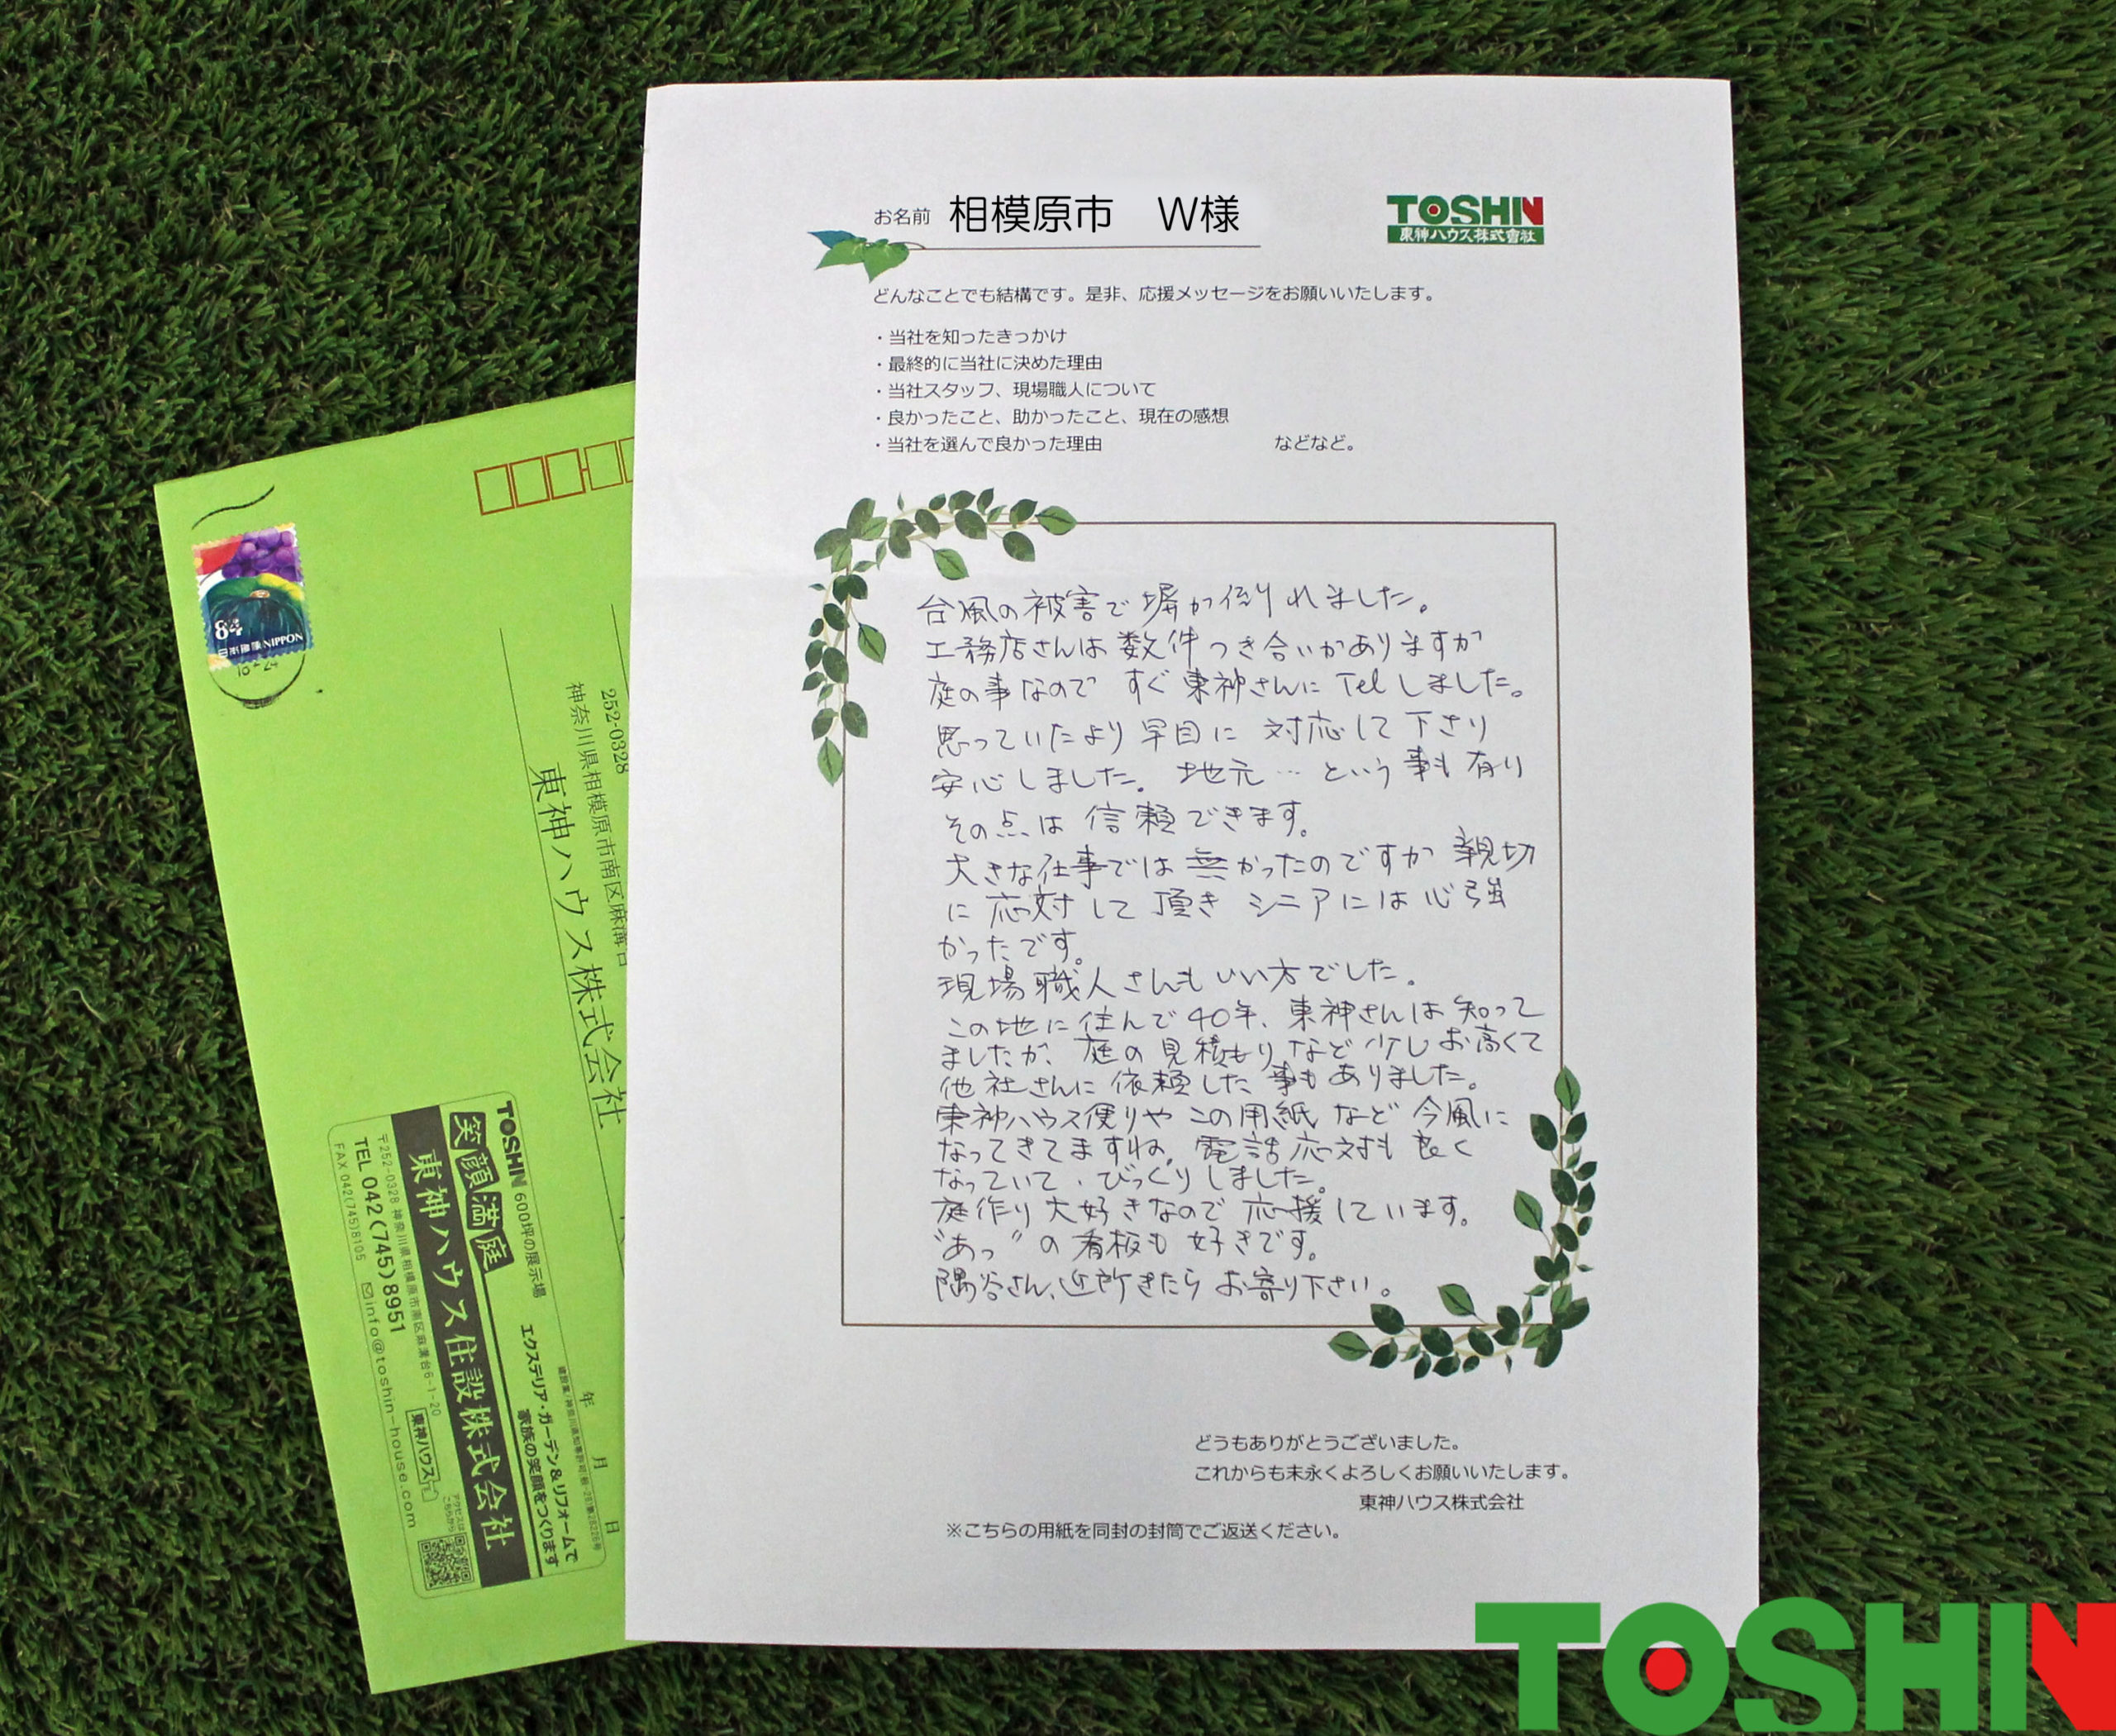 お名前 相模原市 W様
TOSHIN
東神ハウス株式會社
どんなことでも結構です。是非、応援メッセージをお願いいたします。
・当社を知ったきっかけ
・最終的に当社に決めた理由
・当社スタッフ、現場職人について
・良かったこと、助かったこと、現在の感想
・当社を選んで良かった理由 などなど。
台風の被害で塀が倒れました。
工務店さんは数件つき合いがありますが
庭の事なので すぐ東神さんに Tel しました。
思っていたより早目に 対応して下さり
安心しました。 地元…という事も有り
その点は信頼できます。
大きな仕事では無かったのですが 親切
に応対して頂き シニアには心強
かったです。
現場職人さんもいい方でした。
この地に住んで40年、東神さんは知って
ましたが、庭の見積もりなど少しお高くて
他社さんに依頼した事もありました。
東神ハウス便りやこの用紙など今風に
なってきてますね。電話応対も良く
なっていて、びっくりしました。
庭作り大好きなので応援しています。
"あっ"の看板も好きです。
隅谷さん、近所きたらお寄り下さい。
どうもありがとうございました。
これからも末永くよろしくお願いいたします。
東神ハウス株式会社
※こちらの用紙を同封の封筒でご返送ください。
84
NIPPON
日本郵便
252-0328
神奈川県相模原市南区麻溝台
東神ハウス株式会社
年 月 日
TOSHIN 600坪の展示場
エクステリア・ガーデン&リフォームで
家族の笑顔をつくります
笑顔満庭
東神ハウス住設株式会社
〒252-0328 神奈川県相模原市南区麻溝台6-1-20
TEL 042(745)8951
FAX 042(745)8105
info@toshin-house.com
東神ハウス
アクセスは
こちらから
TOSHIN